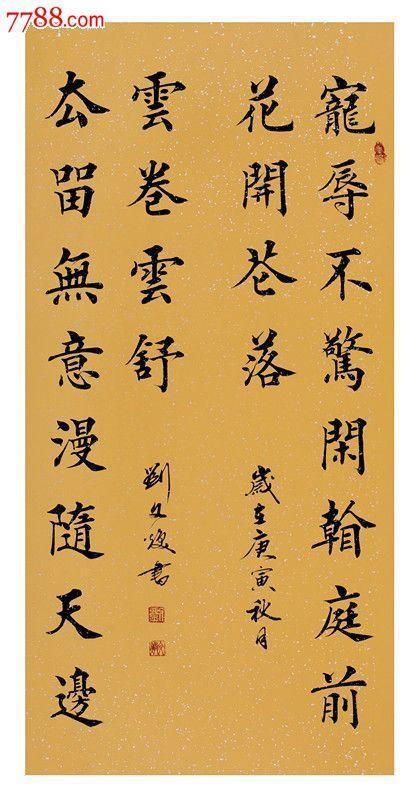 7788.com
寵辱不驚閑看庭前
花開芲落
歲在庚寅秋月
厺㽞無意漫隨天邊
雲卷雲舒
劉文煥書